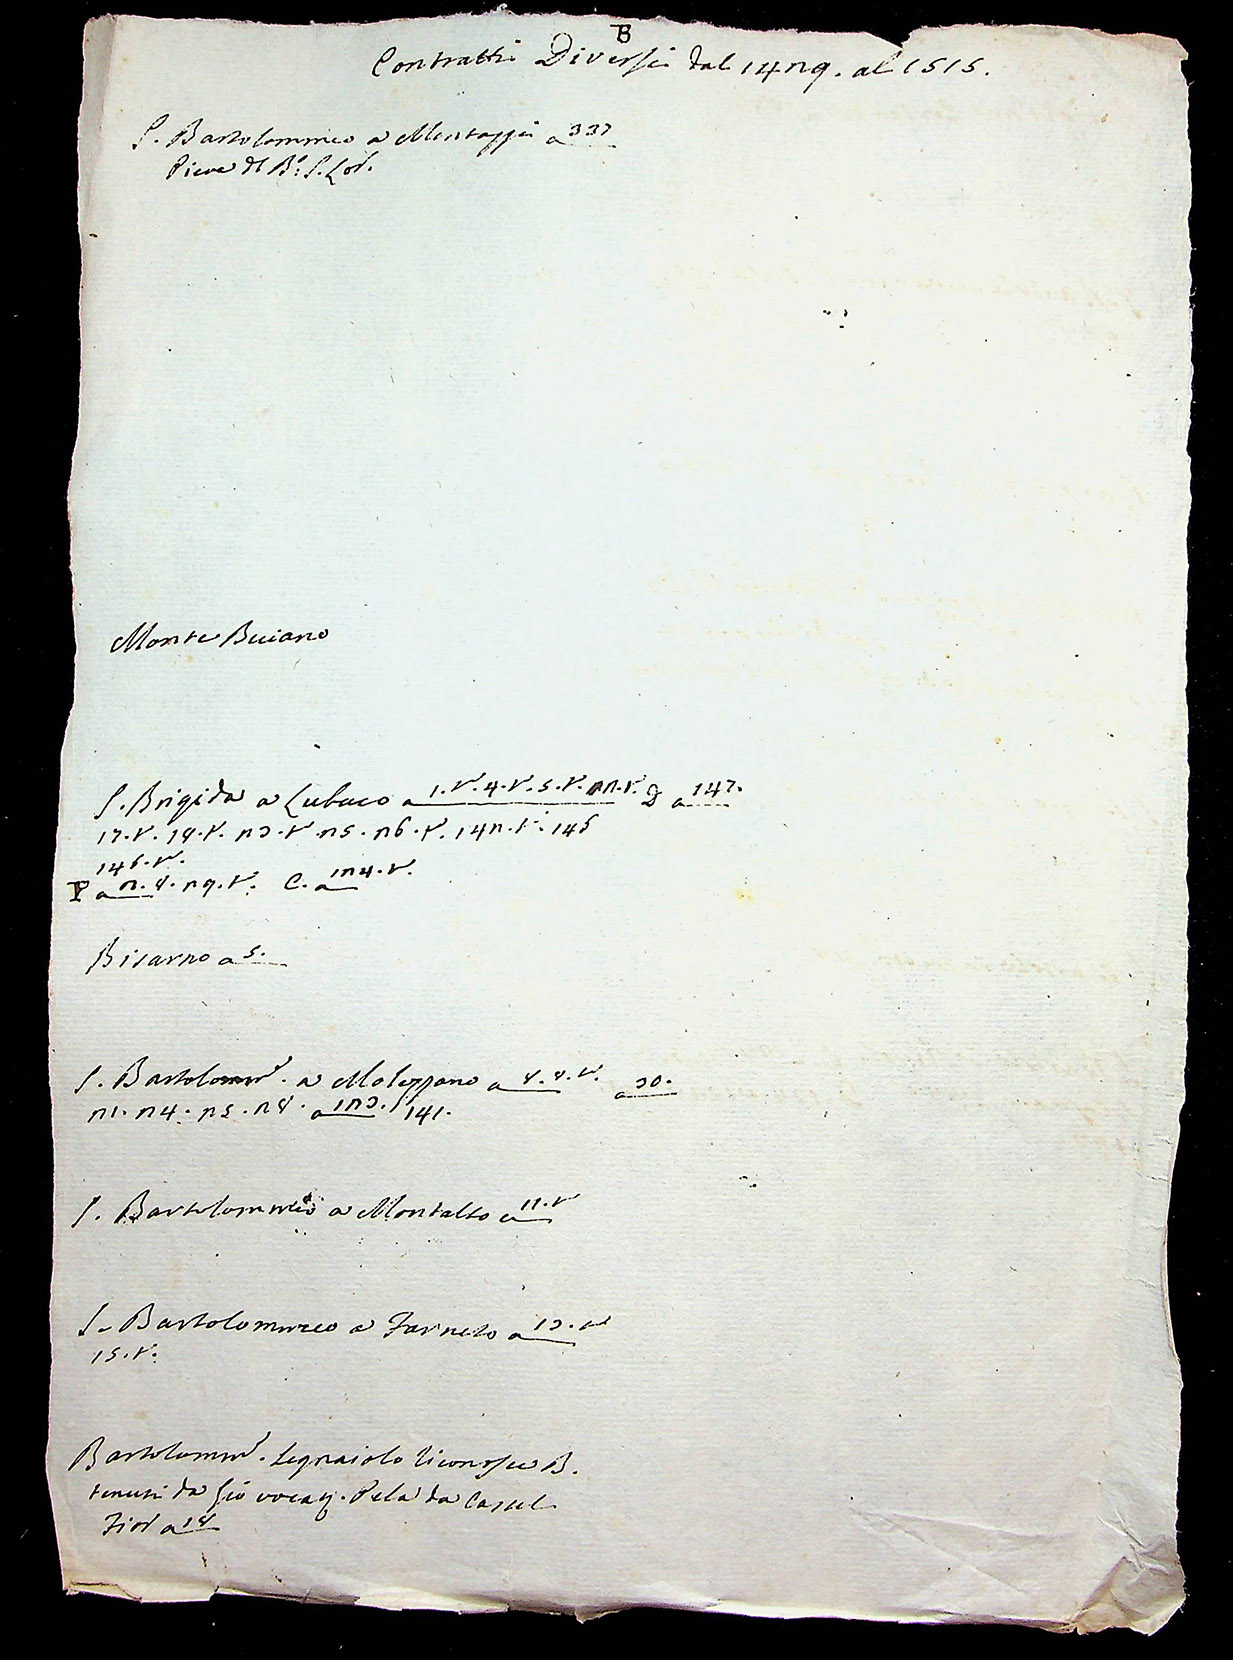 B
Contratti Diversi dal 1429. al 1515.
S. Bartolommeo a Montaggi a 337
Pieve
Monte Buiano
S. Brigida a Lubaco a 1.v. 4.v. 5.v. 22.v. a 147.
17.v. 18.v. 23.v. 25. 26.v. 142.v. 145
146.v.
a 2. 8. 29.v. C. a 124.v.
Bisarno a 5.
S. Bartolomm. a Molezzano a 8. 8.v. a 30.
21. 24. 25. 28. a 123. 141.
S. Bartolommeo a Montalto a 11.v
S. Bartolommeo a Farneto a 13.v
15.v.
Bartolomm. Legnaiolo riconosce B.
tenuti da Gio vocat. Pela da Castel
Fior a 18